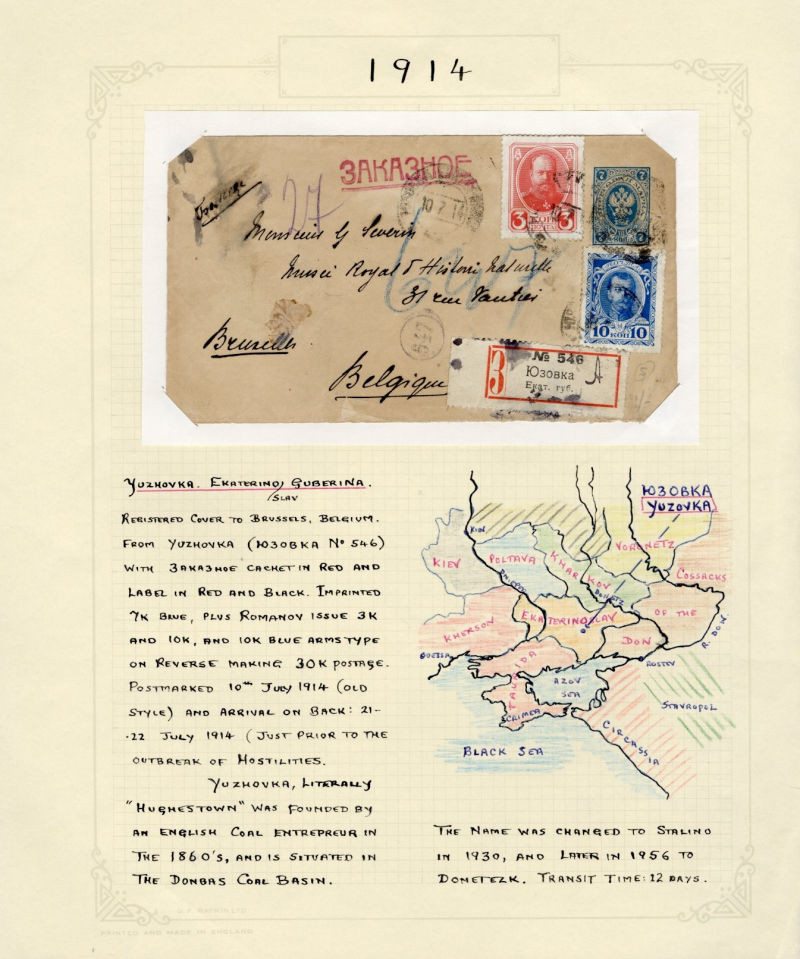 1914
ЗАКАЗНОЕ
27
10 7 14
3 КОП 3
7 7
7 7
10 КОП 10
Monsieur G Severin
Musée Royal d'Histoire Naturelle
31 rue Vautier
Bruxelles
Belgique
547
З
№ 546
Юзовка
Екат. губ.
А
5
YUZHOVKA. EKATERINO/ GUBERINA.
/SLAV
REGISTERED COVER TO BRUSSELS, BELGIUM.
FROM YUZHOVKA (ЮЗОВКА Nº 546)
WITH ЗАКАЗНОЕ CACHET IN RED AND
LABEL IN RED AND BLACK. IMPRINTED
7K BLUE, PLUS ROMANOV ISSUE 3K
AND 10K, AND 10K BLUE ARMS TYPE
ON REVERSE MAKING 30K POSTAGE.
POSTMARKED 10TH JULY 1914 (OLD
STYLE) AND ARRIVAL ON BACK: 21-
-22 JULY 1914 (JUST PRIOR TO THE
OUTBREAK OF HOSTILITIES.
YUZHOVKA, LITERALLY
"HUGHESTOWN" WAS FOUNDED BY
AN ENGLISH COAL ENTREPREUR IN
THE 1860'S, AND IS SITUATED IN
THE DONBAS COAL BASIN.
ЮЗОВКА
YUZOVKA
KIEV
KIEV
POLTAVA
KHARKOV
VORONETZ
COSSACKS
OF THE
DON
R. DON.
DNIEPR
DONETZ
EKATERINOSLAV
KHERSON
ODESSA
TAURIDA
CRIMEA
AZOV
SEA
ROSTOV
STAVROPOL
CIRCASSIA
BLACK SEA
THE NAME WAS CHANGED TO STALINO
IN 1930, AND LATER IN 1956 TO
DONETEZK. TRANSIT TIME: 12 DAYS.
PRINTED AND MADE IN ENGLAND